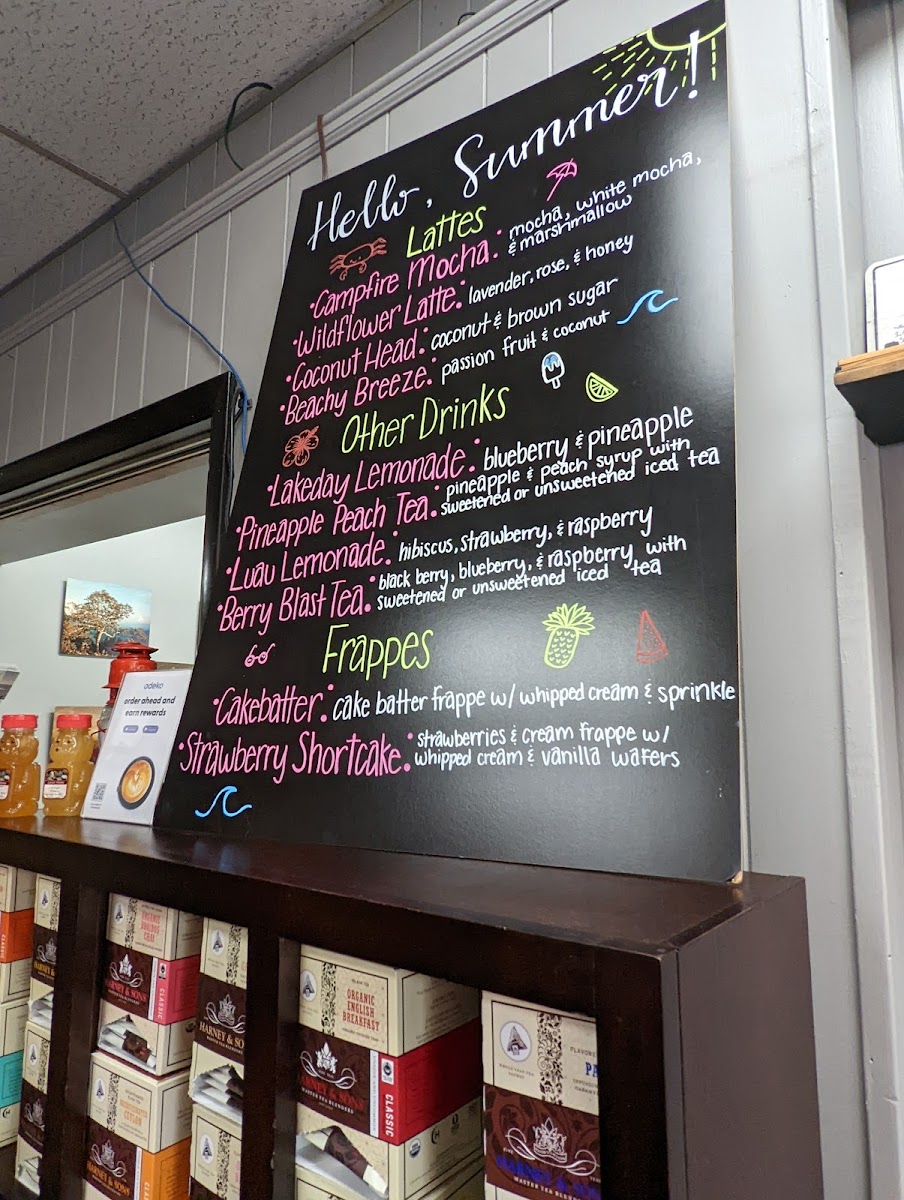 Hello, Summer!
Lattes
•Campfire Mocha: mocha, white mocha,
& marshmallow
•Wildflower Latte: lavender, rose, & honey
•Coconut Head: coconut & brown sugar
•Beachy Breeze: passion fruit & coconut
Other Drinks
•Lakeday Lemonade: blueberry & pineapple
•Pineapple Peach Tea: pineapple & peach syrup with
sweetened or unsweetened iced tea
•Luau Lemonade: hibiscus, strawberry, & raspberry
•Berry Blast Tea: black berry, blueberry, & raspberry with
sweetened or unsweetened iced tea
Frappes
•Cakebatter: cake batter frappe w/ whipped cream & sprinkle
•Strawberry Shortcake: strawberries & cream frappe w/
whipped cream & vanilla wafers
odeko
order ahead and
earn rewards
CLASSIC
HARNEY & SONS
ORGANIC
ROOIBOS
CHAI
HARNEY & SONS
MASTER TEA BLENDERS
CLASSIC
HARNEY & SO
MASTER TEA BLENDERS
ORGANIC
ENGLISH
BREAKFAST
HARNEY & SONS
MASTER TEA BLENDERS
CLASSIC
CEYLON
HARNEY & SONS
PA
HARNEY & SONS
MASTER TEA BLENDERS